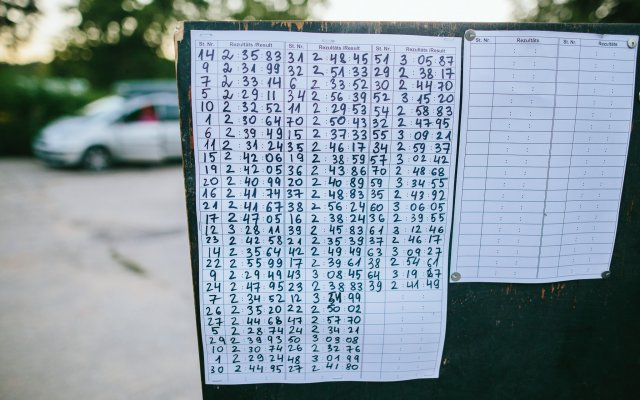 St. Nr. Rezultāts /Result St. Nr. Rezultāts /Result St. Nr. Rezultāts /Result
14 2 : 35 : 83 31 2 : 48 : 45 51 3 : 05 : 87
9 2 : 31 : 99 32 2 : 51 : 33 29 2 : 38 : 17
7 2 : 33 : 14 6 2 : 33 : 52 30 2 : 44 : 70
5 2 : 29 : 11 34 2 : 56 : 39 52 3 : 15 : 20
10 2 : 32 : 52 11 2 : 29 : 53 54 2 : 58 : 83
1 2 : 30 : 64 70 2 : 50 : 43 32 2 : 47 : 95
6 2 : 39 : 49 15 2 : 37 : 33 55 3 : 09 : 21
11 2 : 31 : 24 35 2 : 46 : 17 34 2 : 59 : 37
15 2 : 42 : 06 19 2 : 38 : 59 57 3 : 02 : 42
19 2 : 42 : 05 36 2 : 43 : 86 70 2 : 48 : 68
20 2 : 40 : 99 20 2 : 40 : 89 59 3 : 34 : 55
16 2 : 41 : 74 37 2 : 48 : 83 35 2 : 43 : 92
21 2 : 41 : 67 38 2 : 56 : 24 60 3 : 06 : 05
17 2 : 47 : 05 16 2 : 38 : 24 36 2 : 39 : 55
12 3 : 28 : 11 39 2 : 45 : 83 61 3 : 12 : 46
23 2 : 42 : 58 21 2 : 35 : 39 37 2 : 46 : 17
14 2 : 35 : 64 42 2 : 49 : 49 63 3 : 09 : 27
22 2 : 55 : 99 17 2 : 39 : 61 38 2 : 54 : 61
9 2 : 29 : 49 43 3 : 08 : 45 64 3 : 19 : 87
24 2 : 47 : 95 23 2 : 38 : 83 39 2 : 41 : 49
7 2 : 34 : 52 12 3 : 99
26 2 : 35 : 20 22 2 : 50 : 02
27 2 : 44 : 68 47 2 : 57 : 70
5 2 : 28 : 74 24 2 : 34 : 21
29 2 : 39 : 93 50 3 : 09 : 08
10 2 : 30 : 74 26 2 : 32 : 76
1 2 : 29 : 24 48 3 : 01 : 99
30 2 : 44 : 95 27 2 : 41 : 80
St. Nr. Rezultāts St. Nr. Rezultāts